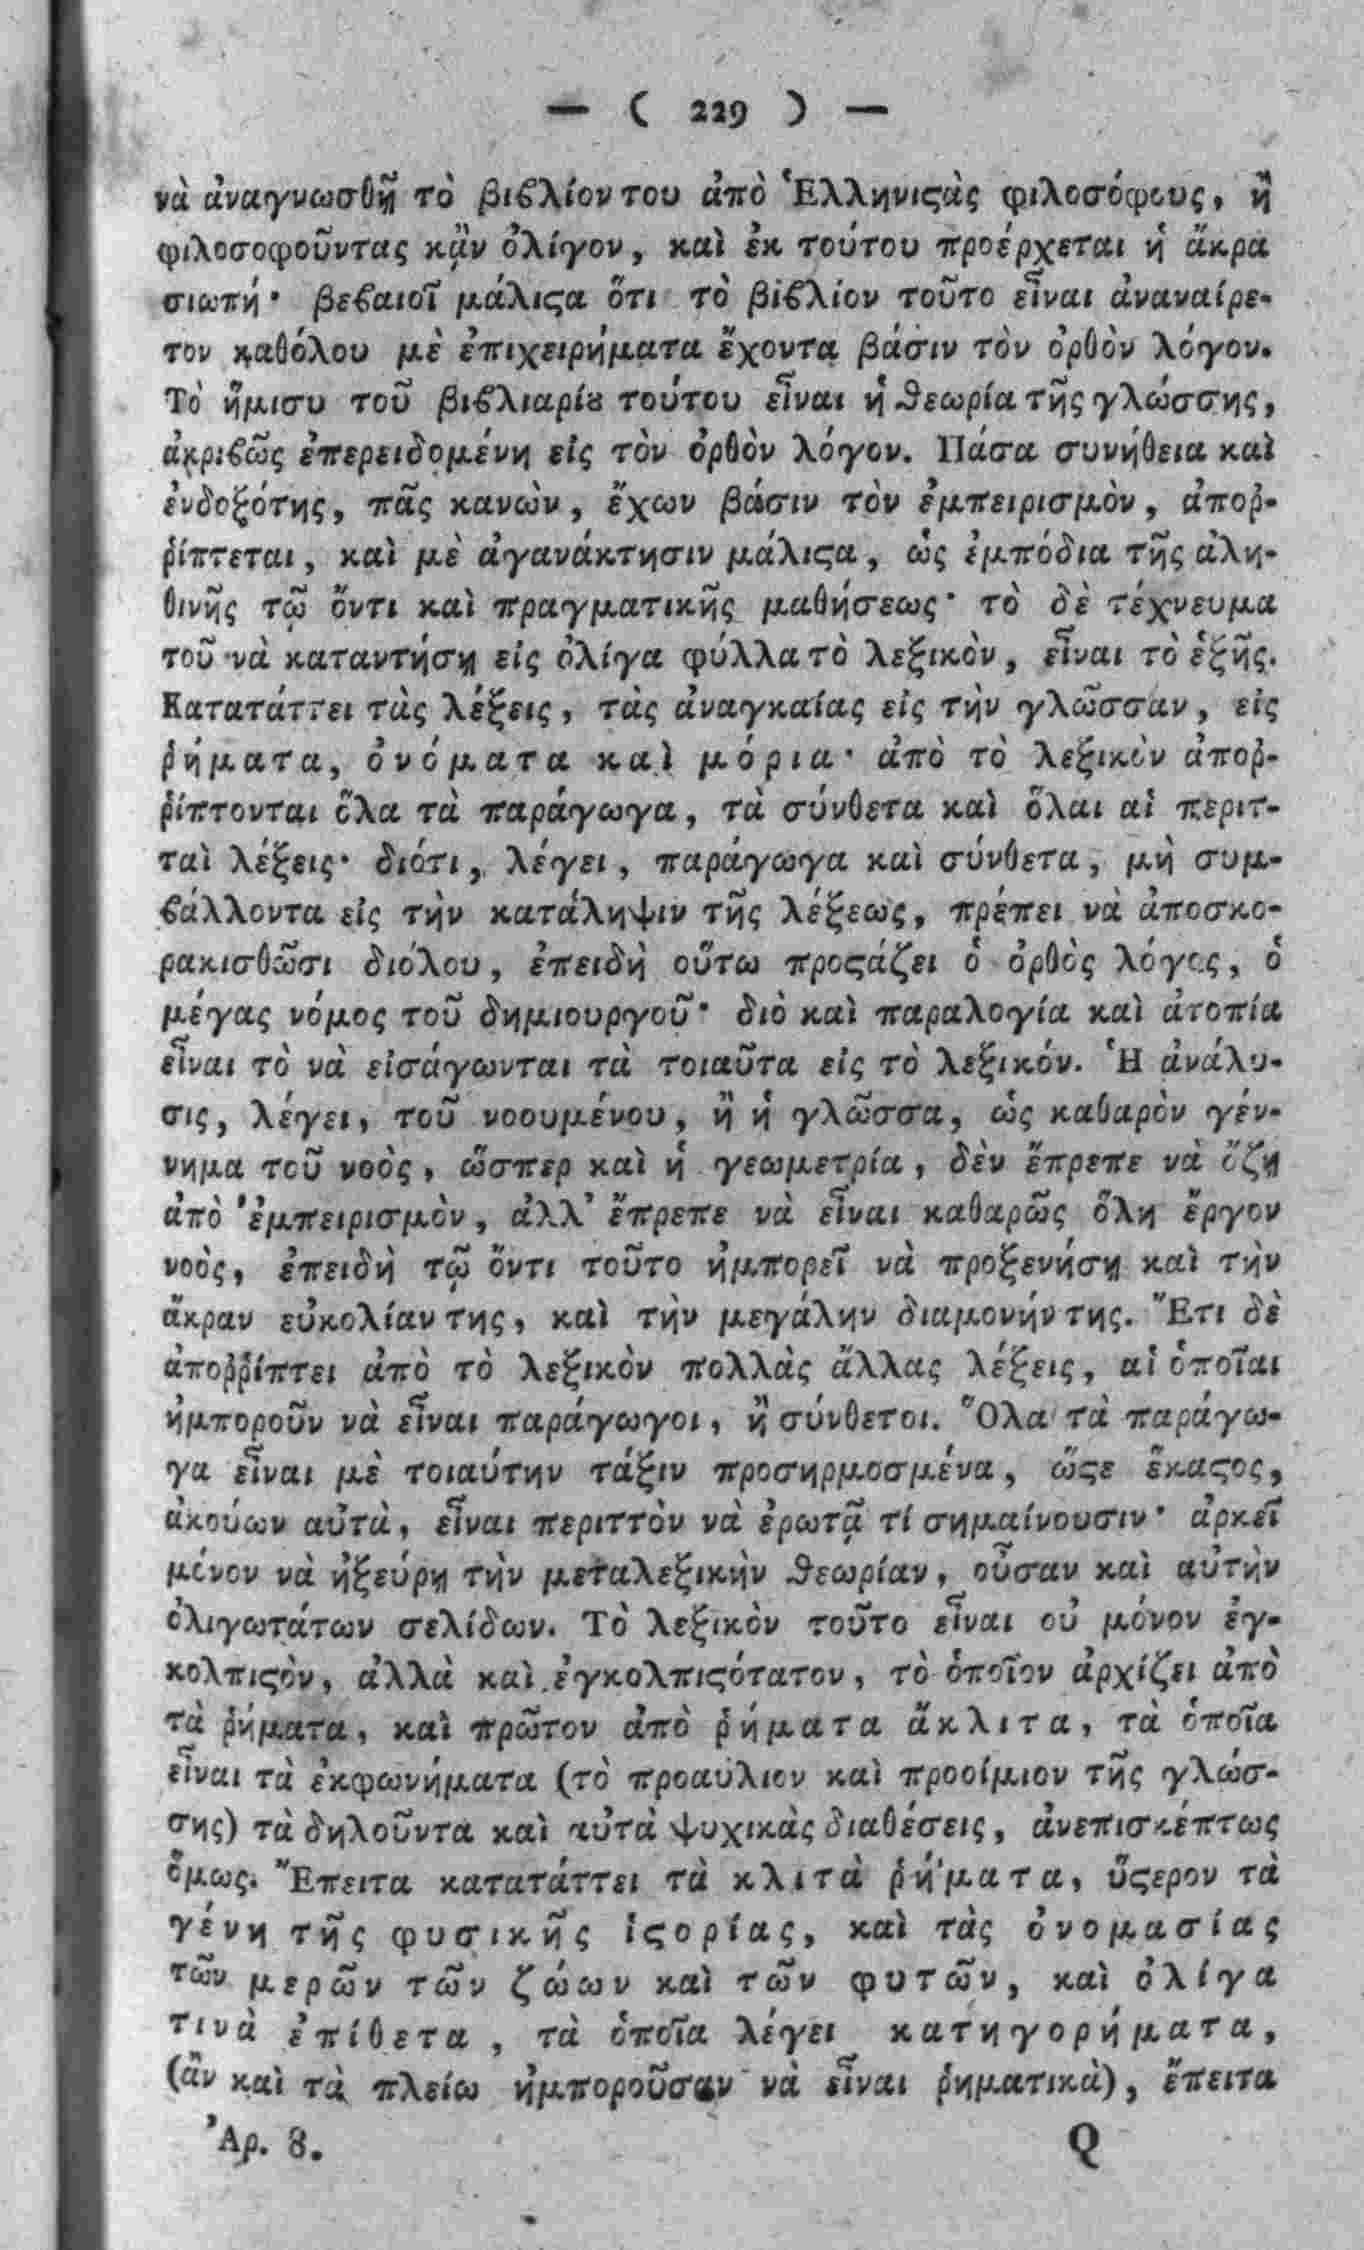 — ( 229 ) —
νὰ ἀναγνωσθῇ τὸ βιϐλίον του ἀπὸ Ἑλληνιϛὰς φιλοσόφους, ἢ
φιλοσοφοῦντας κᾂν ὀλίγον, καὶ ἐκ τούτου προέρχεται ἡ ἄκρα
σιωπή· βεϐαιοῖ μάλιϛα ὅτι τὸ βιϐλίον τοῦτο εἶναι ἀναναίρε-
τον καθόλου μὲ ἐπιχειρήματα ἔχοντα βάσιν τὸν ὀρθὸν λόγον.
Τὸ ἥμισυ τοῦ βιϐλιαρίȣ τούτου εἶναι ἡ ϑεωρία τῆς γλώσσης,
ἀκριϐῶς ἐπερειδομένη εἰς τὸν ὀρθὸν λόγον. Πάσα συνήθεια καὶ
ἐνδοξότης, πᾶς κανὼν, ἔχων βάσιν τὸν ἐμπειρισμὸν, ἀποῤ-
ῥίπτεται, καὶ μὲ ἀγανάκτησιν μάλιϛα, ὡς ἐμπόδια τῆς ἀλη-
θινῆς τῷ ὄντι καὶ πραγματικῆς μαθήσεως· τὸ δὲ τέχνευμα
τοῦ νὰ καταντήσῃ εἰς ὀλίγα φύλλα τὸ λεξικὸν, εἶναι τὸ ἑξῆς.
Κατατάττει τὰς λέξεις, τὰς ἀναγκαίας εἰς τὴν γλῶσσαν, εἰς
ῥήματα, ὀνόματα καὶ μόρια· ἀπὸ τὸ λεξικὸν ἀποῤ-
ῥίπτονται ὅλα τὰ παράγωγα, τὰ σύνθετα καὶ ὅλαι αἱ περιτ-
ταὶ λέξεις· διότι, λέγει, παράγωγα καὶ σύνθετα, μὴ συμ-
ϐάλλοντα εἰς τὴν κατάληψιν τῆς λέξεως, πρέπει νὰ ἀποσκο-
ρακισθῶσι διόλου, ἐπειδὴ οὕτω προϛάζει ὁ ὀρθὸς λόγος, ὁ
μέγας νόμος τοῦ δημιουργοῦ· διὸ καὶ παραλογία καὶ ἀτοπία
εἶναι τὸ νὰ εἰσάγωνται τὰ τοιαῦτα εἰς τὸ λεξικόν. Ἡ ἀνάλυ-
σις, λέγει, τοῦ νοουμένου, ἢ ἡ γλῶσσα, ὡς καθαρὸν γέν-
νημα τοῦ νοὸς, ὥσπερ καὶ ἡ γεωμετρία, δὲν ἔπρεπε νὰ ὄζῃ
ἀπὸ ἐμπειρισμὸν, ἀλλ’ ἔπρεπε νὰ εἶναι καθαρῶς ὅλη ἔργον
νοὸς, ἐπειδὴ τῷ ὄντι τοῦτο ἠμπορεῖ νὰ προξενήσῃ καὶ τὴν
ἄκραν εὐκολίαν της, καὶ τὴν μεγάλην διαμονήν της. Ἔτι δὲ
ἀποῤῥίπτει ἀπὸ τὸ λεξικὸν πολλὰς ἄλλας λέξεις, αἱ ὁποῖαι
ἠμποροῦν νὰ εἶναι παράγωγοι, ἢ σύνθετοι. Ὅλα τὰ παράγω-
γα εἶναι μὲ τοιαύτην τάξιν προσηρμοσμένα, ὥϛε ἕκαϛος,
ἀκούων αὐτὰ, εἶναι περιττὸν νὰ ἐρωτᾷ τί σημαίνουσιν· ἀρκεῖ
μόνον νὰ ἠξεύρῃ τὴν μεταλεξικὴν ϑεωρίαν, οὖσαν καὶ αὐτὴν
ὀλιγωτάτων σελίδων. Τὸ λεξικὸν τοῦτο εἶναι οὐ μόνον ἐγ-
κολπιϛὸν, ἀλλὰ καὶ ἐγκολπιϛότατον, τὸ ὁποῖον ἀρχίζει ἀπὸ
τὰ ῥήματα, καὶ πρῶτον ἀπὸ ῥήματα ἄκλιτα, τὰ ὁποῖα
εἶναι τὰ ἐκφωνήματα (τὸ προαύλιον καὶ προοίμιον τῆς γλώσ-
σης) τὰ δηλοῦντα καὶ αὐτὰ ψυχικὰς διαθέσεις, ἀνεπισκέπτως
ὅμως. Ἔπειτα κατατάττει τὰ κλιτὰ ῥήματα, ὕϛερον τὰ
γένη τῆς φυσικῆς ἱϛορίας, καὶ τὰς ὀνομασίας
τῶν μερῶν τῶν ζώων καὶ τῶν φυτῶν, καὶ ὀλίγα
τινὰ ἐπίθετα, τὰ ὁποῖα λέγει κατηγορήματα,
(ἂν καὶ τὰ πλείω ἠμποροῦσαν νὰ εἶναι ῥηματικὰ), ἔπειτα
Ἀρ. 8. Q